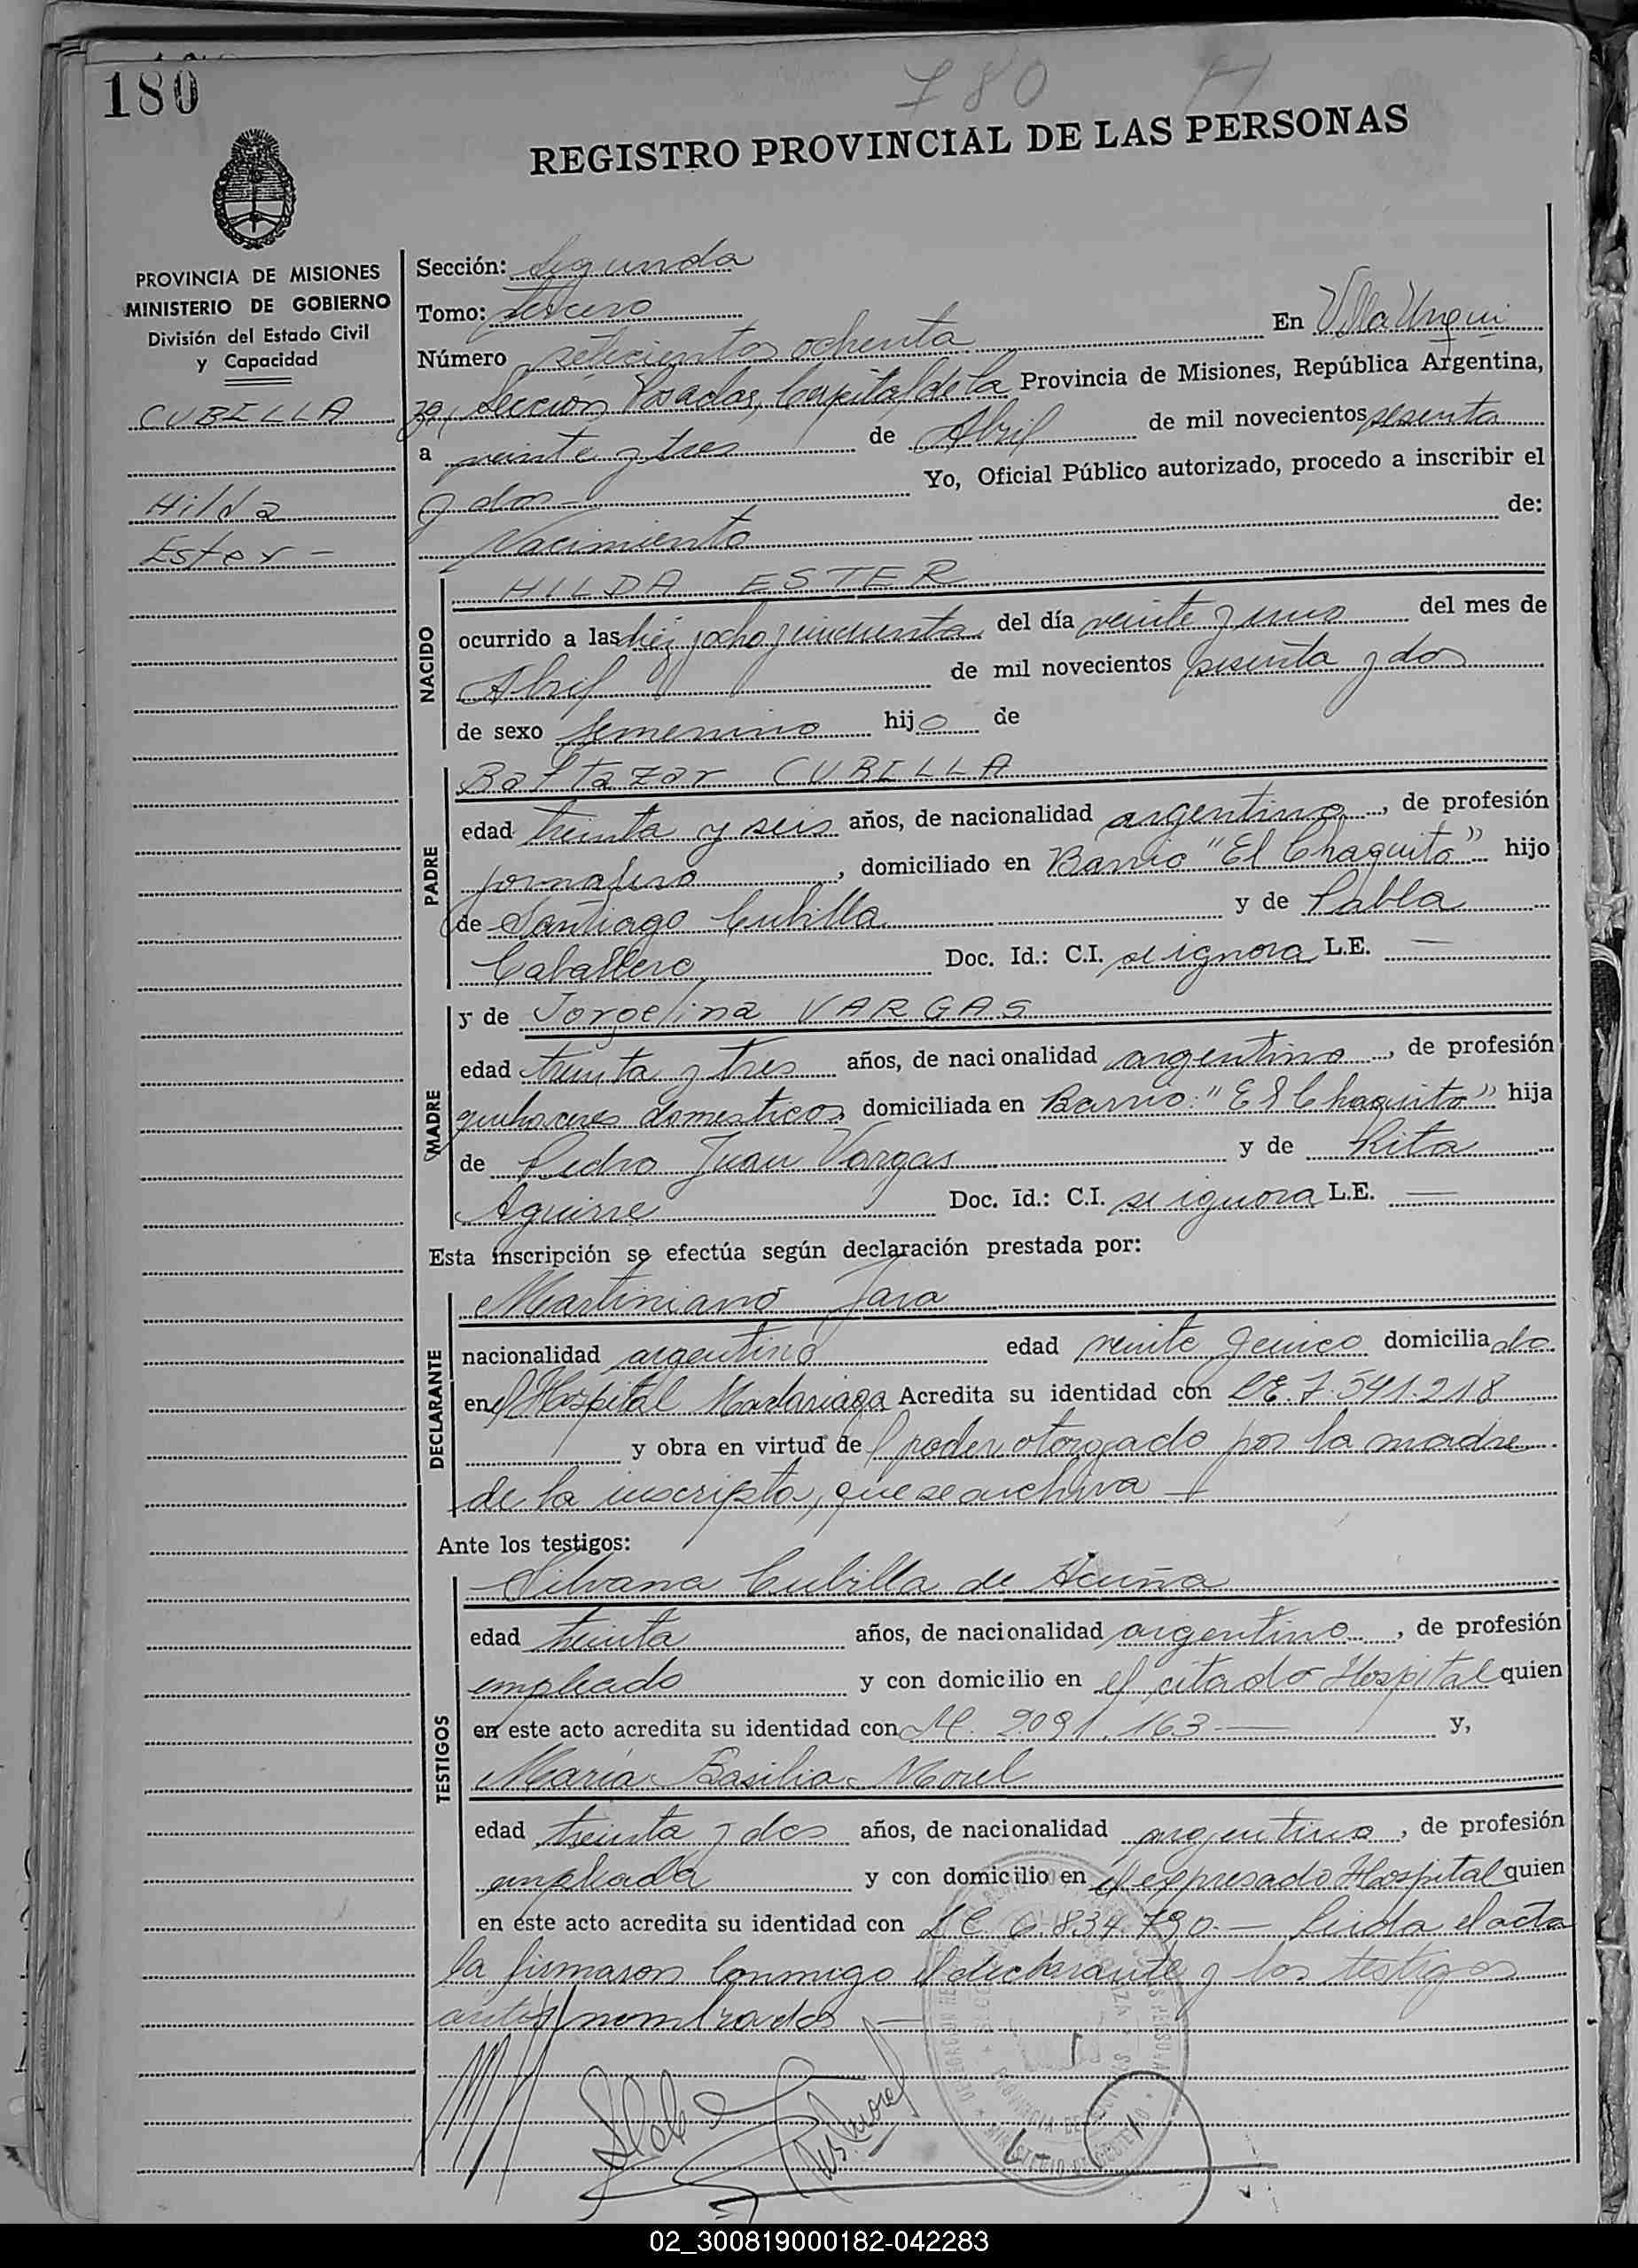 180
780
REGISTRO PROVINCIAL DE LAS PERSONAS
PROVINCIA DE MISIONES
MINISTERIO DE GOBIERNO
División del Estado Civil
y Capacidad
CUBILLA
Hilda
Ester -
Sección: Segunda
Tomo: tercero
Número setecientos ochenta En Villa Urqui
za, Sección Posadas, Capital de la Provincia de Misiones, República Argentina,
a veinte y tres de Abril de mil novecientos sesenta
y dos - Yo, Oficial Público autorizado, procedo a inscribir el
Nacimiento de:
NACIDO
HILDA ESTER
ocurrido a las diez y ocho y cincuenta del día veinte y uno del mes de
Abril de mil novecientos sesenta y dos
de sexo femenino hijo de
PADRE
Baltazar CUBILLA
edad treinta y seis años, de nacionalidad argentino, de profesión
jornalero, domiciliado en Barrio "El Chaquito" hijo
de Santiago Cubilla y de Pabla
Caballero Doc. Id.: C.I. se ignora L.E. —
MADRE
y de Jorgelina VARGAS
edad treinta y tres años, de nacionalidad argentina, de profesión
quehaceres domesticos domiciliada en Barrio: "El Chaquito" hija
de Pedro Juan Vargas y de Rita
Aguirre Doc. Id.: C.I. se ignora L.E. —
Esta inscripción se efectúa según declaración prestada por:
DECLARANTE
Martiniano Jara
nacionalidad argentino edad veinte y cinco domiciliado
en el Hospital Madariaga Acredita su identidad con LE. 7.541.218
y obra en virtud del poder otorgado por la madre
de la inscripta, que se archiva -
Ante los testigos:
TESTIGOS
Silvana Cubilla de Acuña
edad treinta años, de nacionalidad argentino, de profesión
empleado y con domicilio en el citado Hospital quien
en este acto acredita su identidad con M. 2091.163 — y,
María Basilia Morel
edad treinta y dos años, de nacionalidad argentina, de profesión
empleada y con domicilio en el expresado Hospital quien
en este acto acredita su identidad con LC 6.834.790 — Leida el acta
la firmaron conmigo el declarante y los testigos
antes nombrados —
02_300819000182-042283